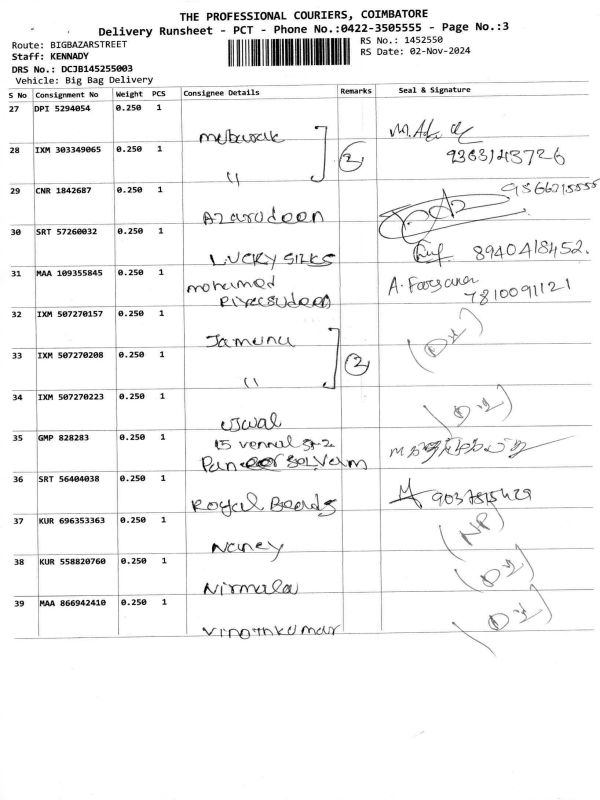 THE PROFESSIONAL COURIERS, COIMBATORE
Delivery Runsheet - PCT - Phone No.:0422-3505555 - Page No.:3
Route: BIGBAZARSTREET
RS No.: 1452550
Staff: KENNADY
RS Date: 02-Nov-2024
DRS No.: DCJB145255003
Vehicle: Big Bag Delivery
S No Consignment No Weight PCS Consignee Details Remarks Seal & Signature
27 DPI 5294054 0.250 1
Mubarak
28 IXM 303349065 0.250 1 2 9363143726
"
29 CNR 1842687 0.250 1 9366215555
Azarudeen
30 SRT 57260032 0.250 1
LUCKY SILKS 8940418452.
31 MAA 109355845 0.250 1
mohamed A. Farsana
7810091121
32 IXM 507270157 0.250 1
Jamunu
33 IXM 507270208 0.250 1 2 (DL)
"
34 IXM 507270223 0.250 1
ujwal (DL)
35 GMP 828283 0.250 1
15 vennal st-2
Panneer selvam
36 SRT 56404038 0.250 1
Royal Beads 9037815429
37 KUR 696353363 0.250 1
Naney (NP)
38 KUR 558820760 0.250 1
Nirmala (DL)
39 MAA 866942410 0.250 1
Vinothkumar (DL)